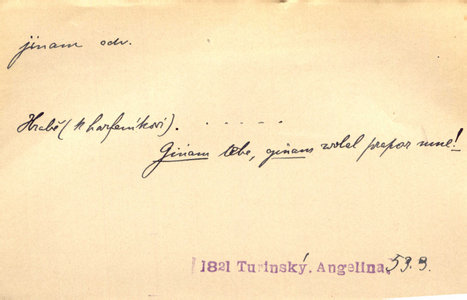 jinam odv.
Hrabě (k harfeníkovi). . . . . .
Ginam tebe, ginam wolal prapor mne!
1821 Turinský, Angelina, 53.9.